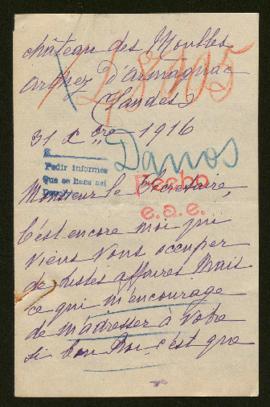 château des
d'armagnac
Landes
31 Xbre 1916
Danos
Pedir informes
que se hace
Hecho
e.a.e.
Monsieur le Secrétaire,
C'est encore moi qui
viens vous occuper
de tristes affaires Mais
ce qui m'encourage
de m'adresser à votre
si bon Roi c'est que